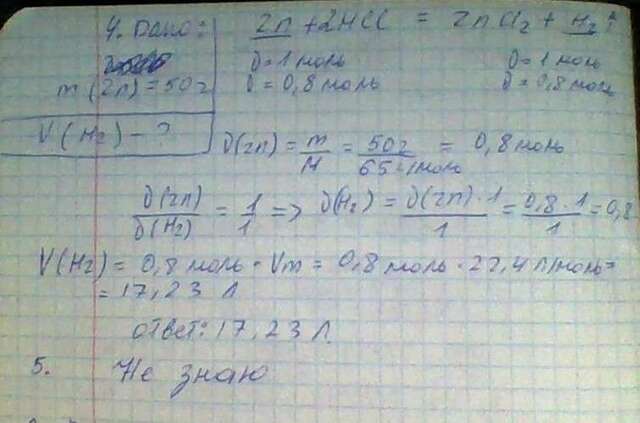 4. Дано: Zn + 2HCl = ZnCl₂ + H₂↑
ν = 1 моль ν = 1 моль
m (Zn) = 50 г ν = 0,8 моль ν = 0,8 моль
V (H₂) - ?
ν(Zn) = m/M = 50 г/65 г/моль = 0,8 моль
ν(Zn)/ν(H₂) = 1/1 => ν(H₂) = ν(Zn)·1/1 = 0,8·1/1 = 0,8
V(H₂) = 0,8 моль · Vm = 0,8 моль · 22,4 л/моль =
= 17,23 л
ответ: 17,23 л.
5. Не знаю